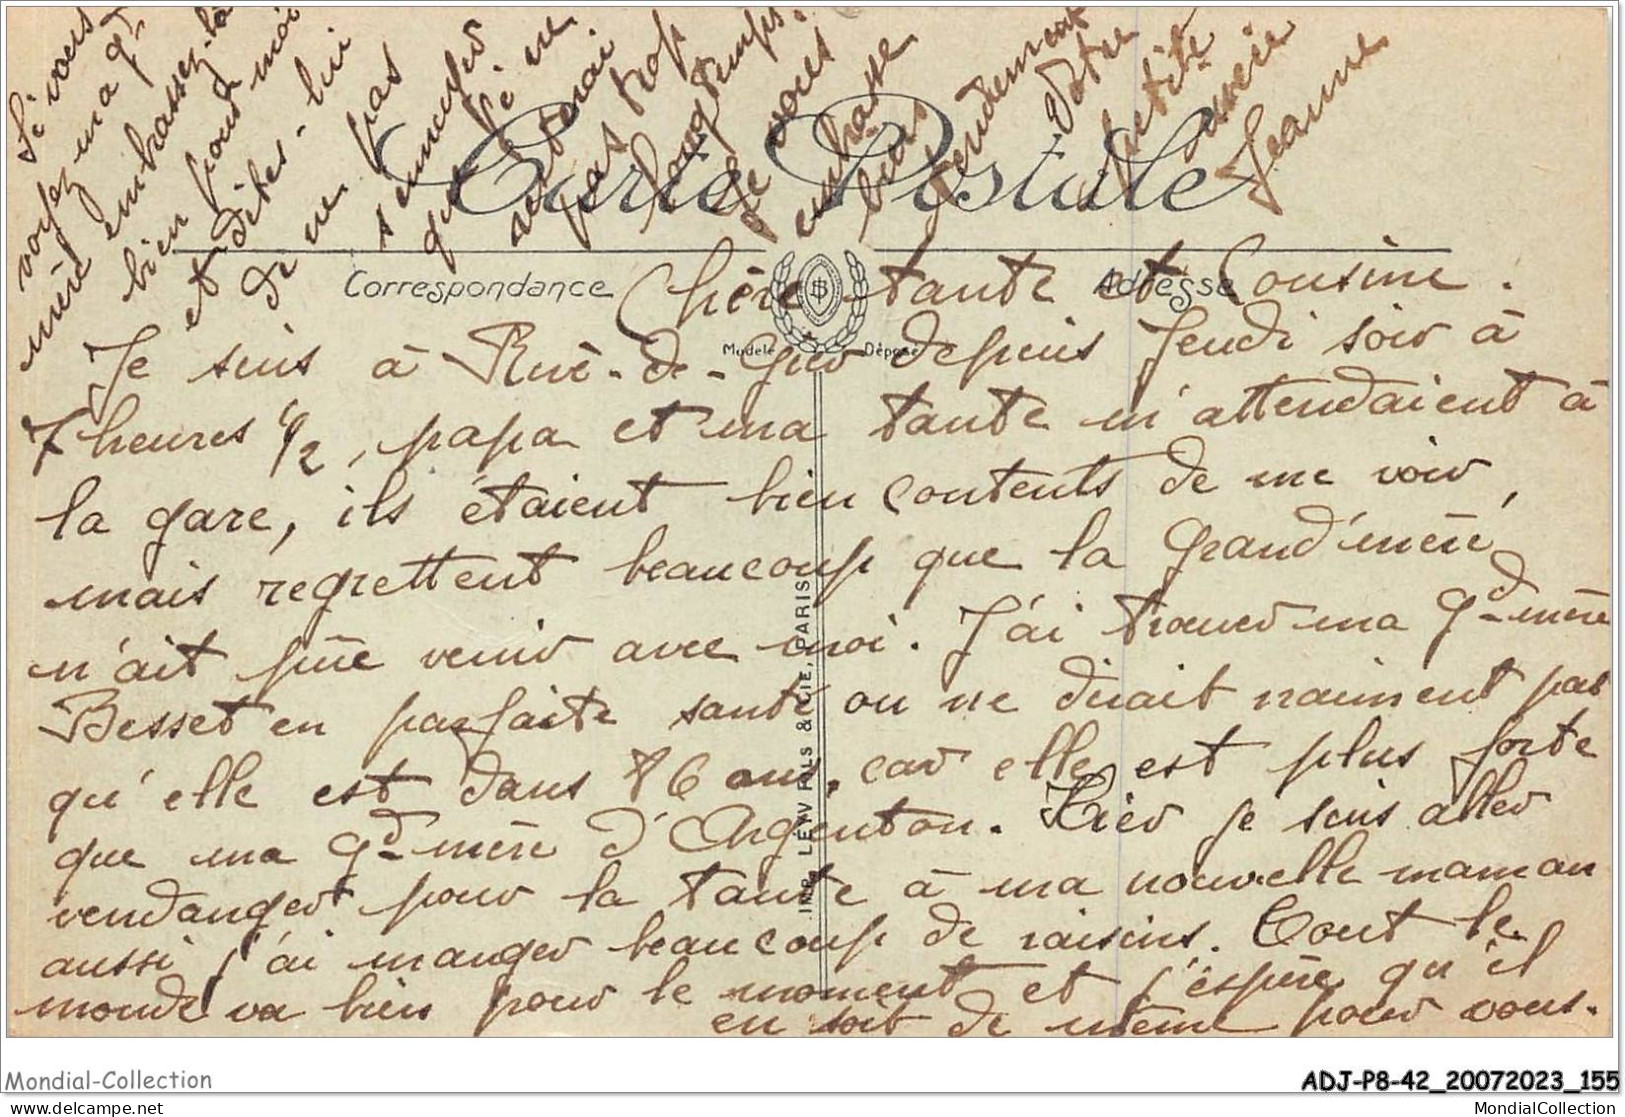 Carte Postale
Correspondance
Adresse
Modèle Déposé
IMP. LEVY FILS & CIE, PARIS
Chère tante et Cousine.
Je suis à Rive-de-Gier depuis Jeudi soir à
7 heures 1/2, papa et ma tante m'attendaient à
la gare, ils étaient bien contents de me voir,
mais regrettent beaucoup que la Grand'mère
n'ait pu venir avec moi. J'ai trouver ma Gd-mère
Besset en parfaite santé on ne dirait vraiment pas
qu'elle est dans 86 ans, car elle est plus forte
que ma Gd-mère d'Argenton. Hier je suis aller
vendanger pour la tante à ma nouvelle maman
aussi j'ai manger beaucoup de raisins. Tout le
monde va bien pour le moment et j'espère qu'il
en soit de même pour vous.
Si vous
voyez ma gd
mère embrassez-la
bien pour moi
et dites-lui
de ne pas
s'ennuyer
que je ne
resterai
pas trop
longtemps.
Je vous
embrasse
bien
tendrement
Votre
petite
nièce
Jeanne
Mondial-Collection
ADJ-P8-42_20072023_155
www.mondial-collection.com
MondialCollection